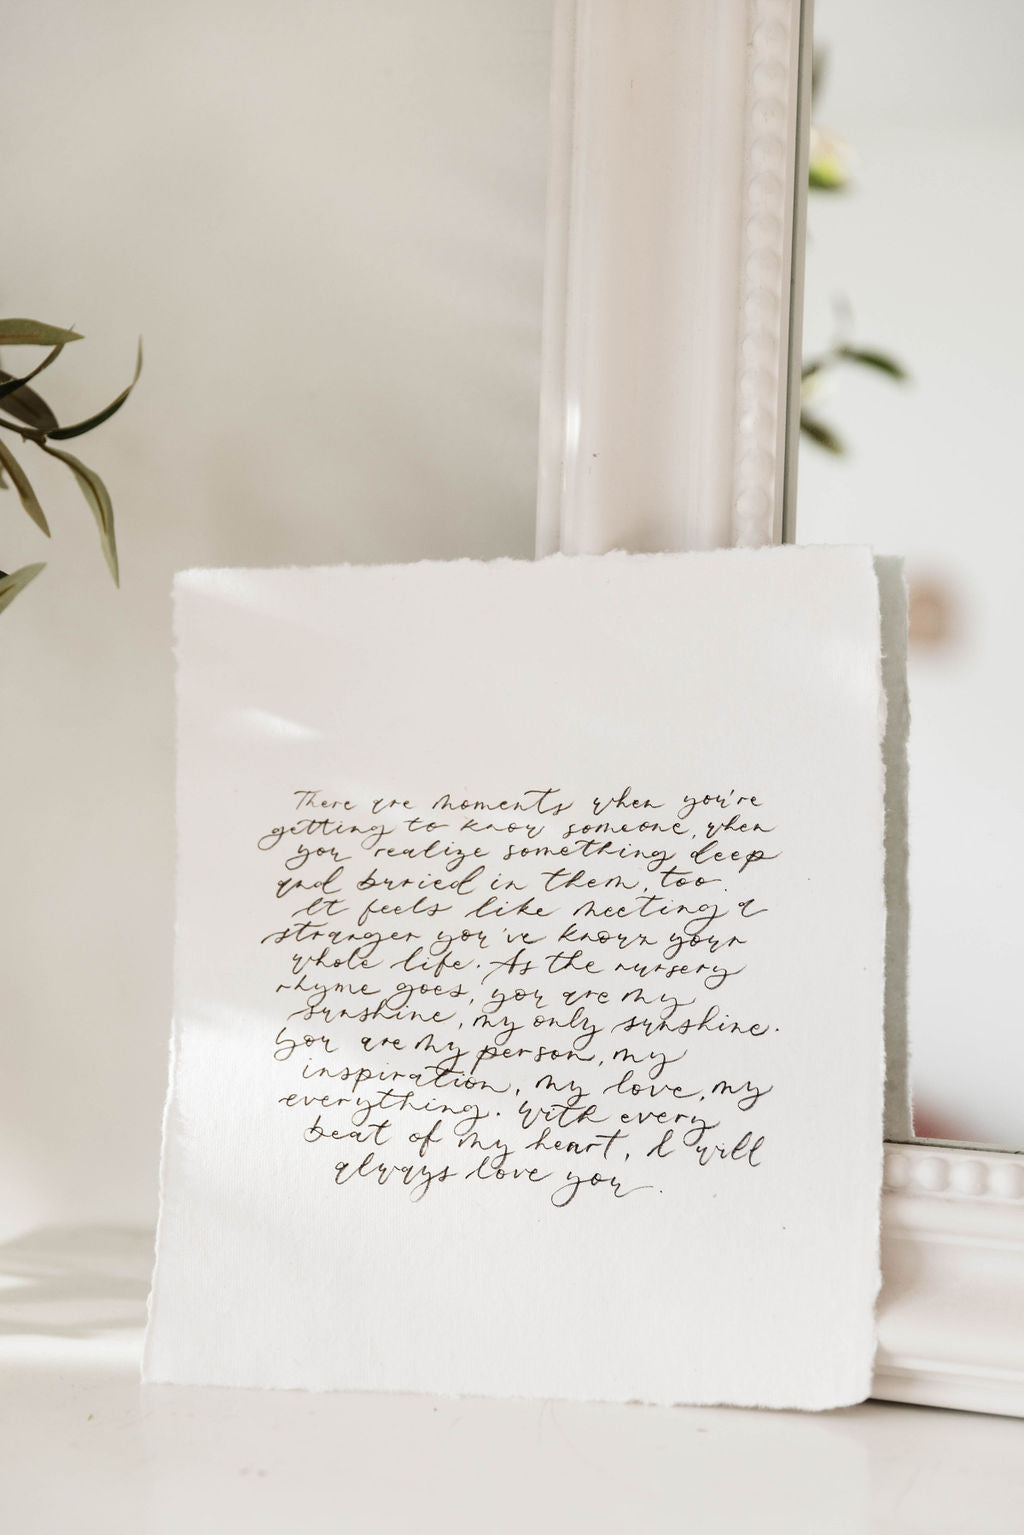 There are moments when you're
getting to know someone, when
you realize something deep
and buried in them, too.
It feels like meeting a
stranger you've known your
whole life. As the nursery
rhyme goes, you are my
sunshine, my only sunshine.
You are my person, my
inspiration, my love, my
everything. With every
beat of my heart, I will
always love you.